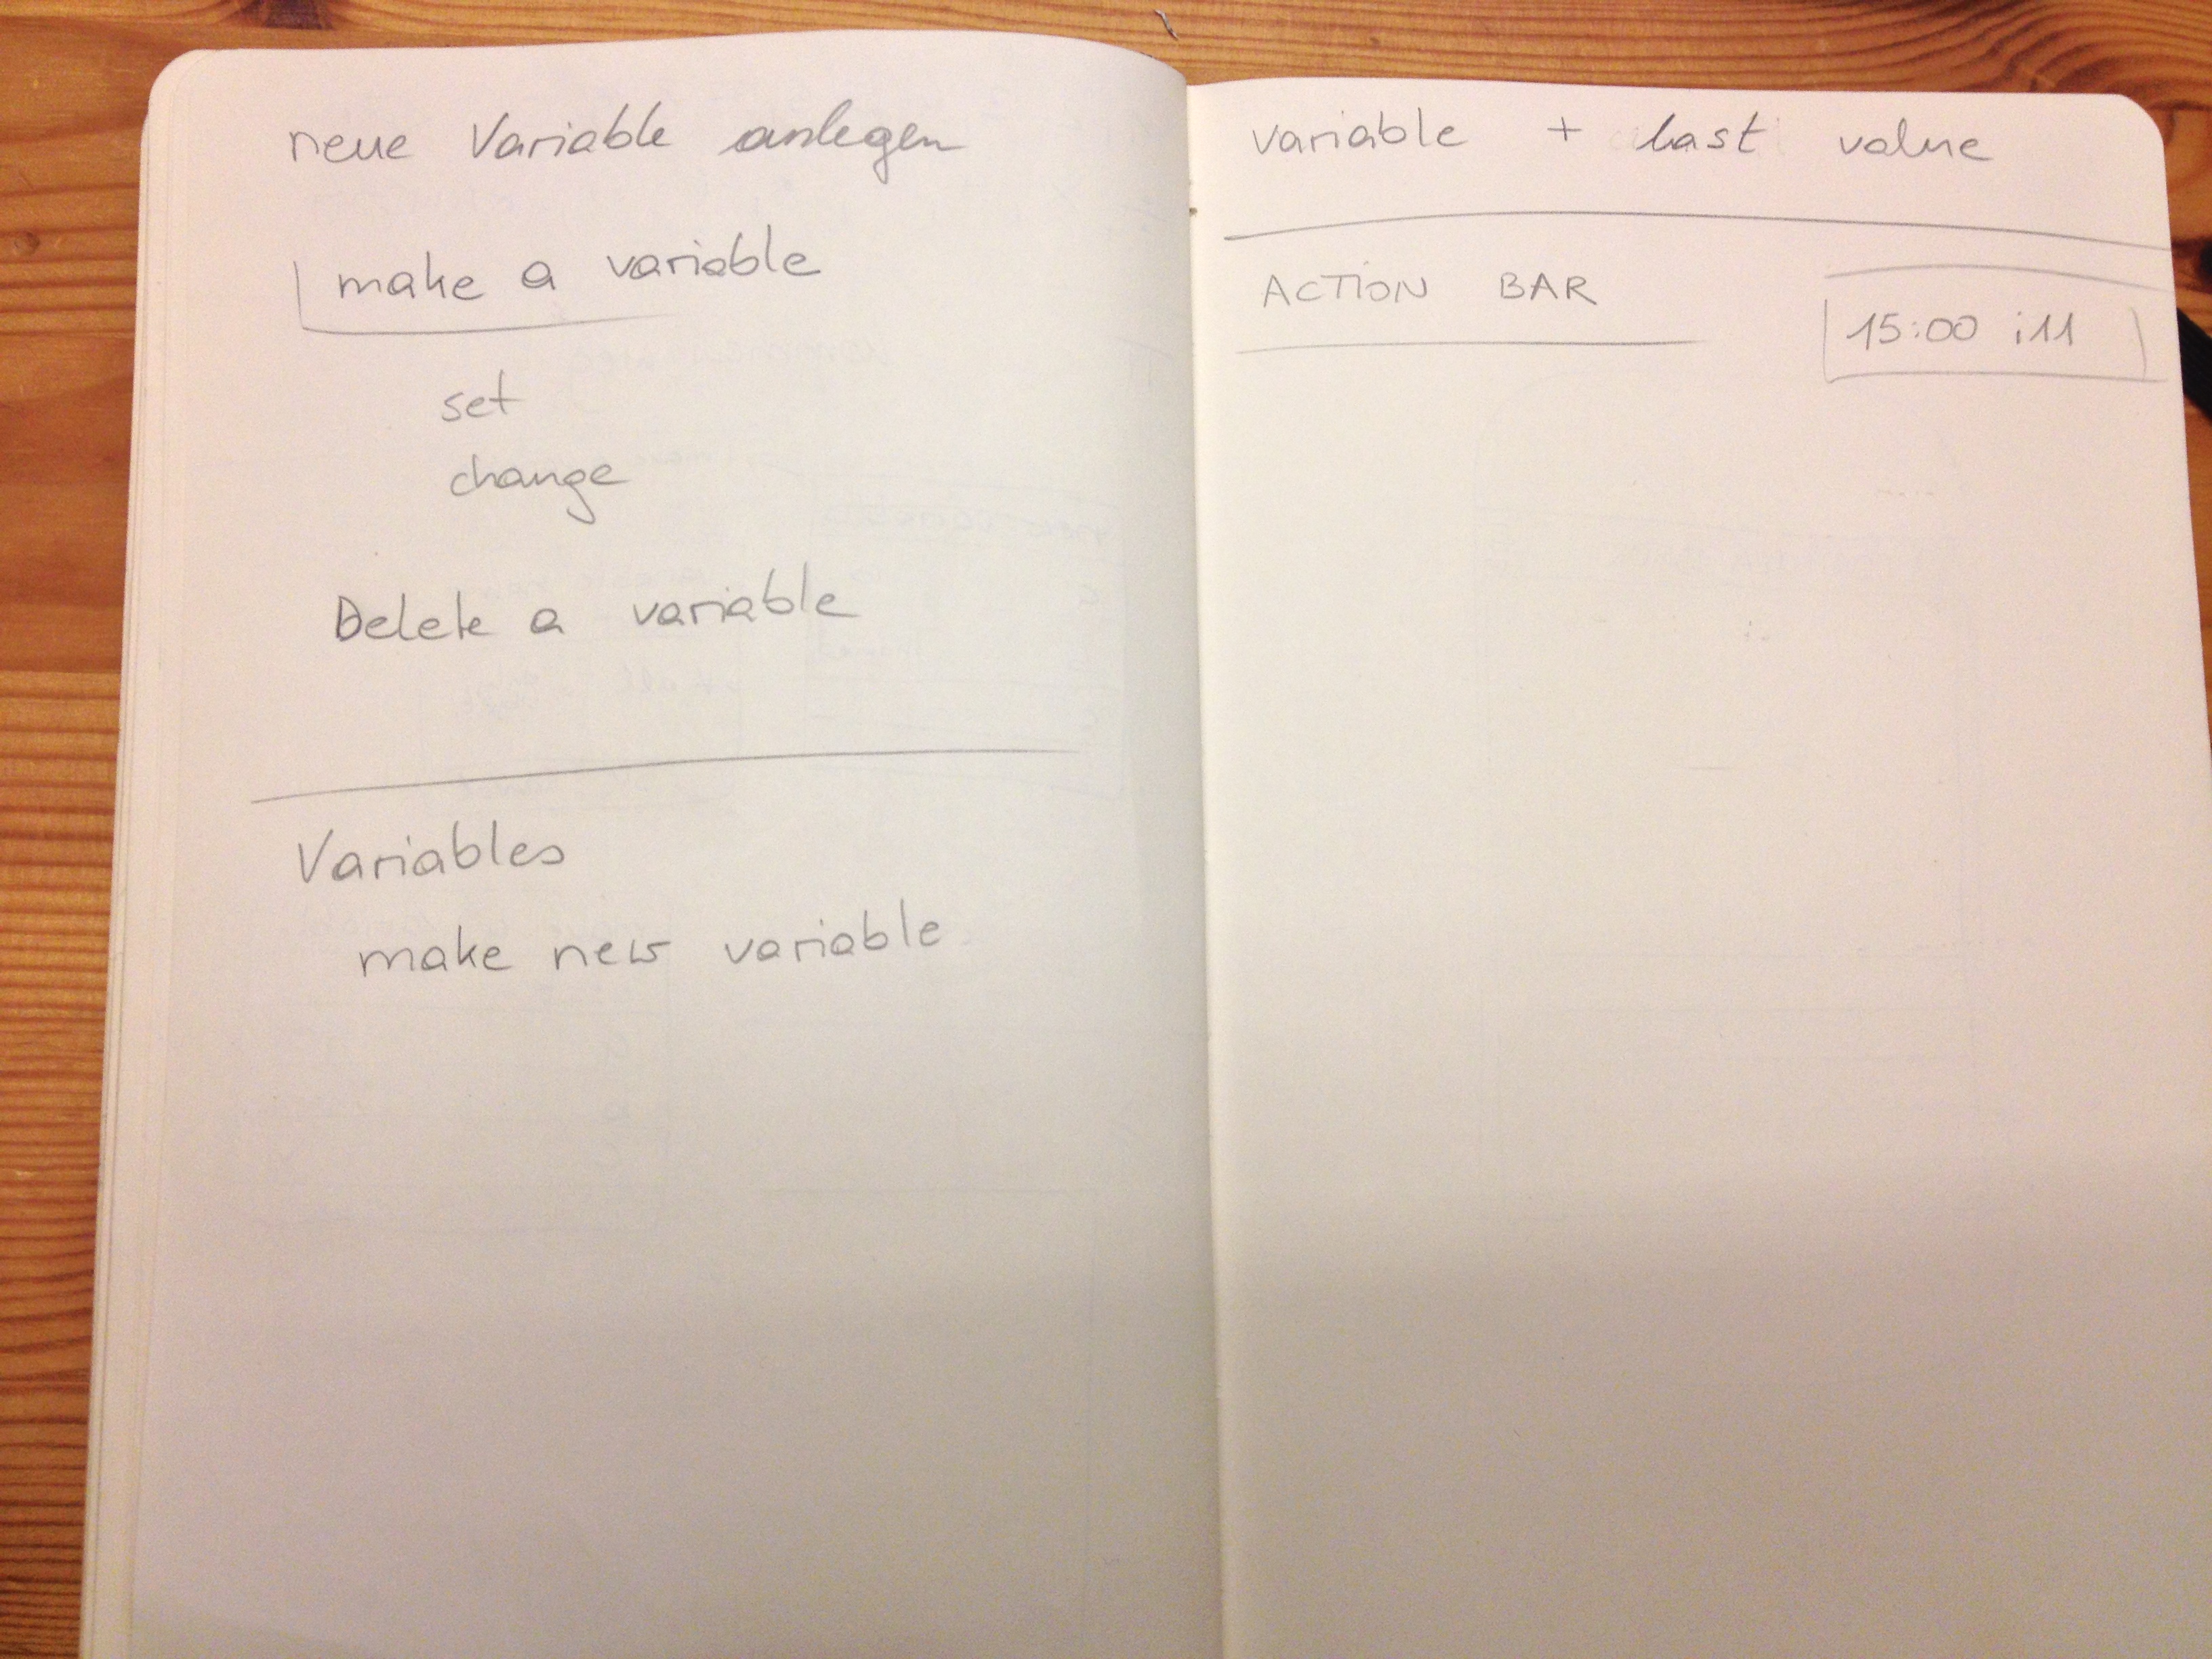 neue Variable anlegen
make a variable
set
change
Delete a variable
Variables
make new variable
variable + last value
ACTION BAR
15:00 i11